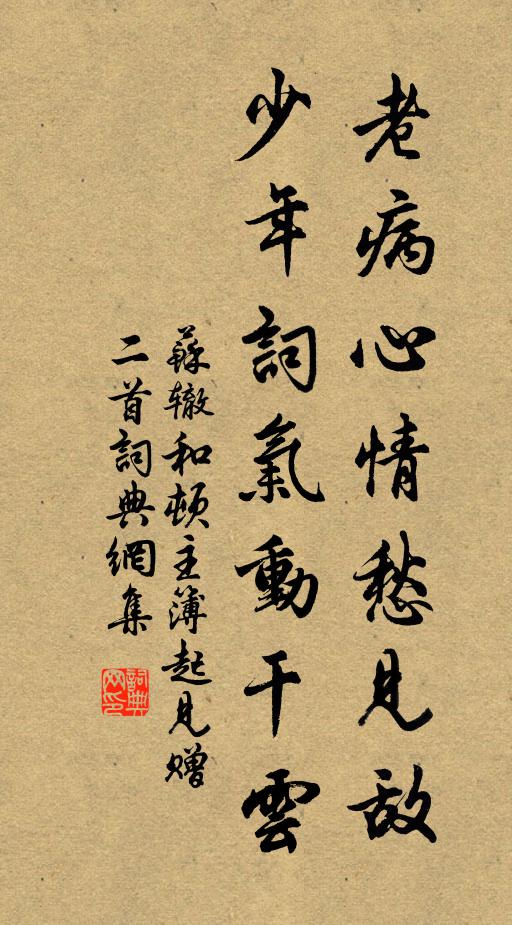 老病心情愁見敌
少年詞氣動干雲
蘇辙和頓主簿起見赠
二首詞典網集
詞典网印